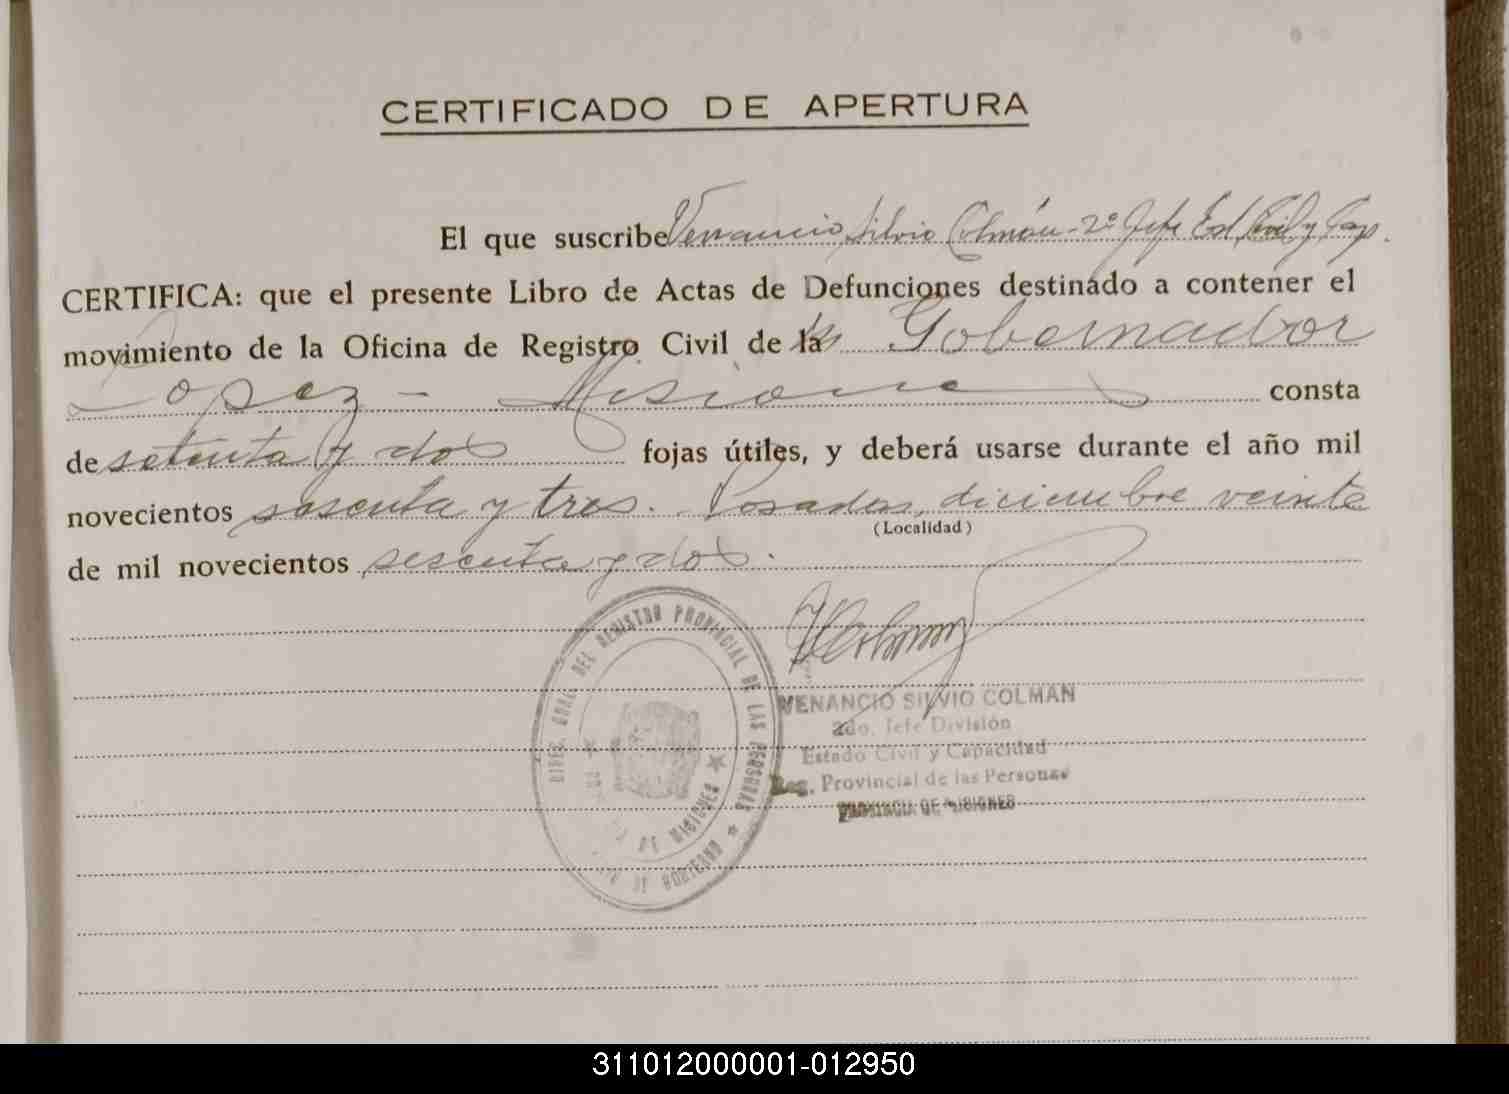 CERTIFICADO DE APERTURA
El que suscribe Venancio Silvio Colmán - 2º Jefe Est. Civil y Cap.
CERTIFICA: que el presente Libro de Actas de Defunciones destinado a contener el
movimiento de la Oficina de Registro Civil de la Gobernador
Lopez - Misiones consta
de setenta y dos fojas útiles, y deberá usarse durante el año mil
novecientos sesenta y tres. Posadas, diciembre veinte
(Localidad)
de mil novecientos sesenta y dos.
VENANCIO SILVIO COLMAN
2do. Jefe División
Estado Civil y Capacidad
Reg. Provincial de las Personas
PROVINCIA DE MISIONES
DIREC. GRAL. DEL REGISTRO PROVINCIAL DE LAS PERSONAS
DE MISIONES
DE GOBIERNO
311012000001-012950